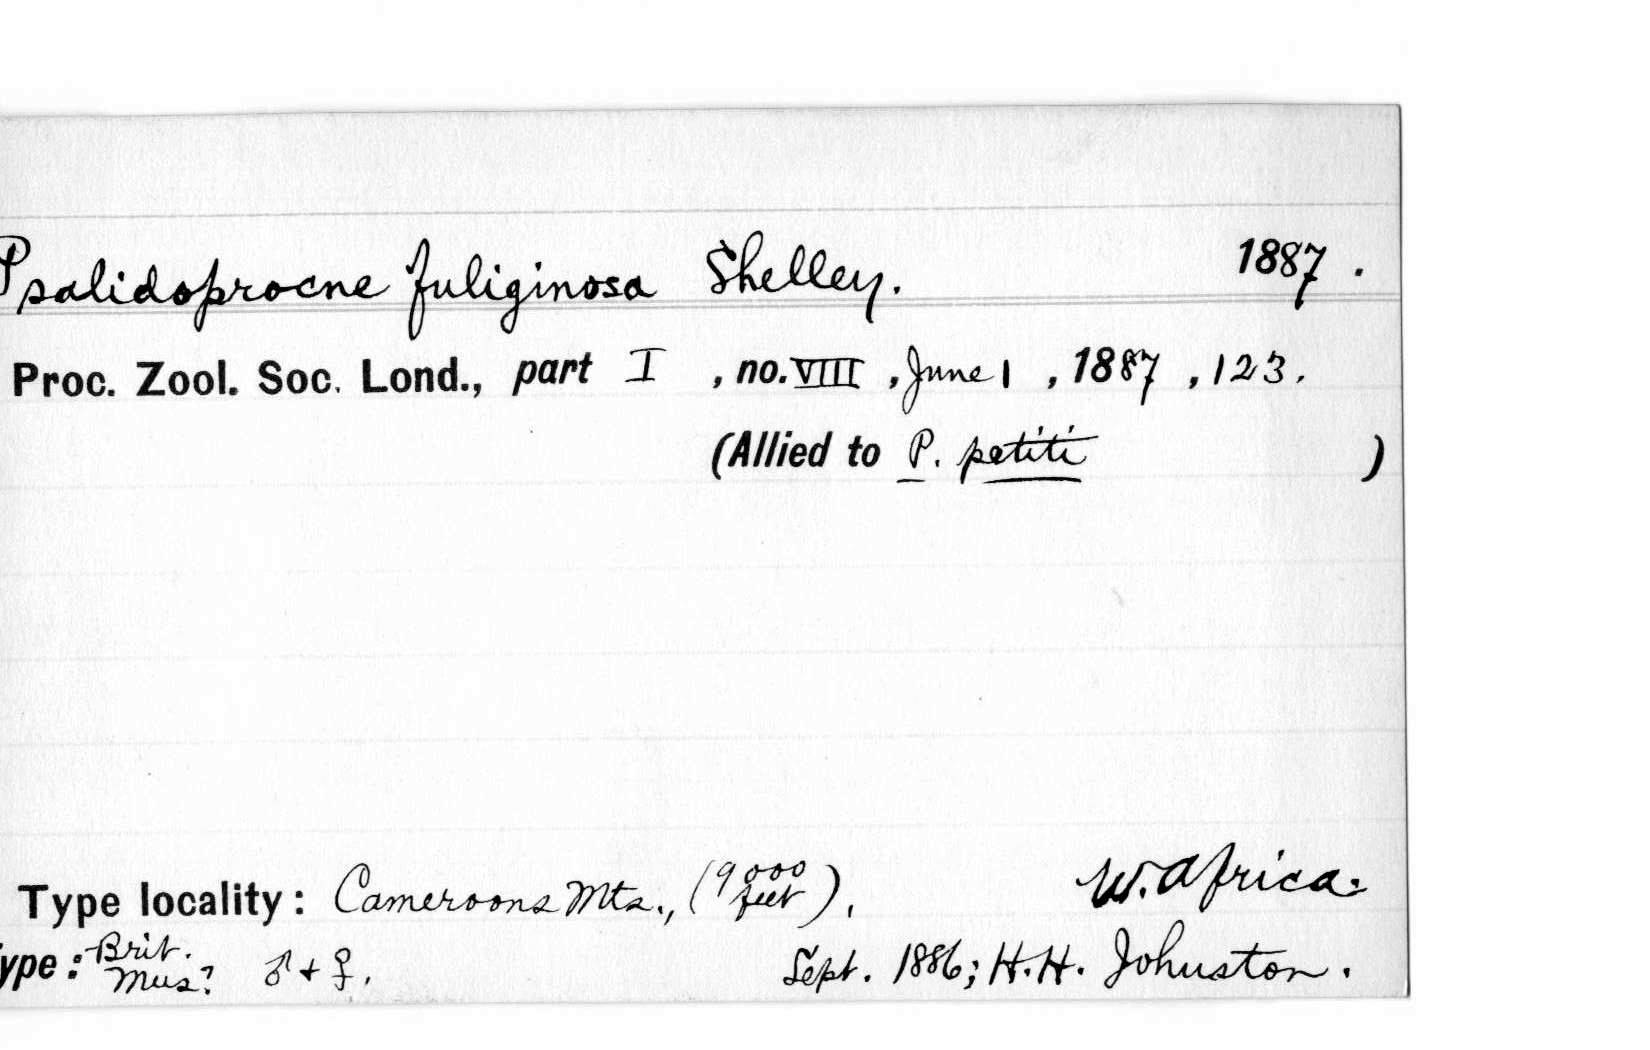 Psalidoprocne fuliginosa Shelley. 1887.
Proc. Zool. Soc. Lond., part I, no. VIII, June 1, 1887, 123.
(Allied to P. petiti)
Type locality: Cameroons Mts., (9000 feet), W. Africa.
ype: Brit. Mus? ♂ + ♀. Sept. 1886; H. H. Johnston.